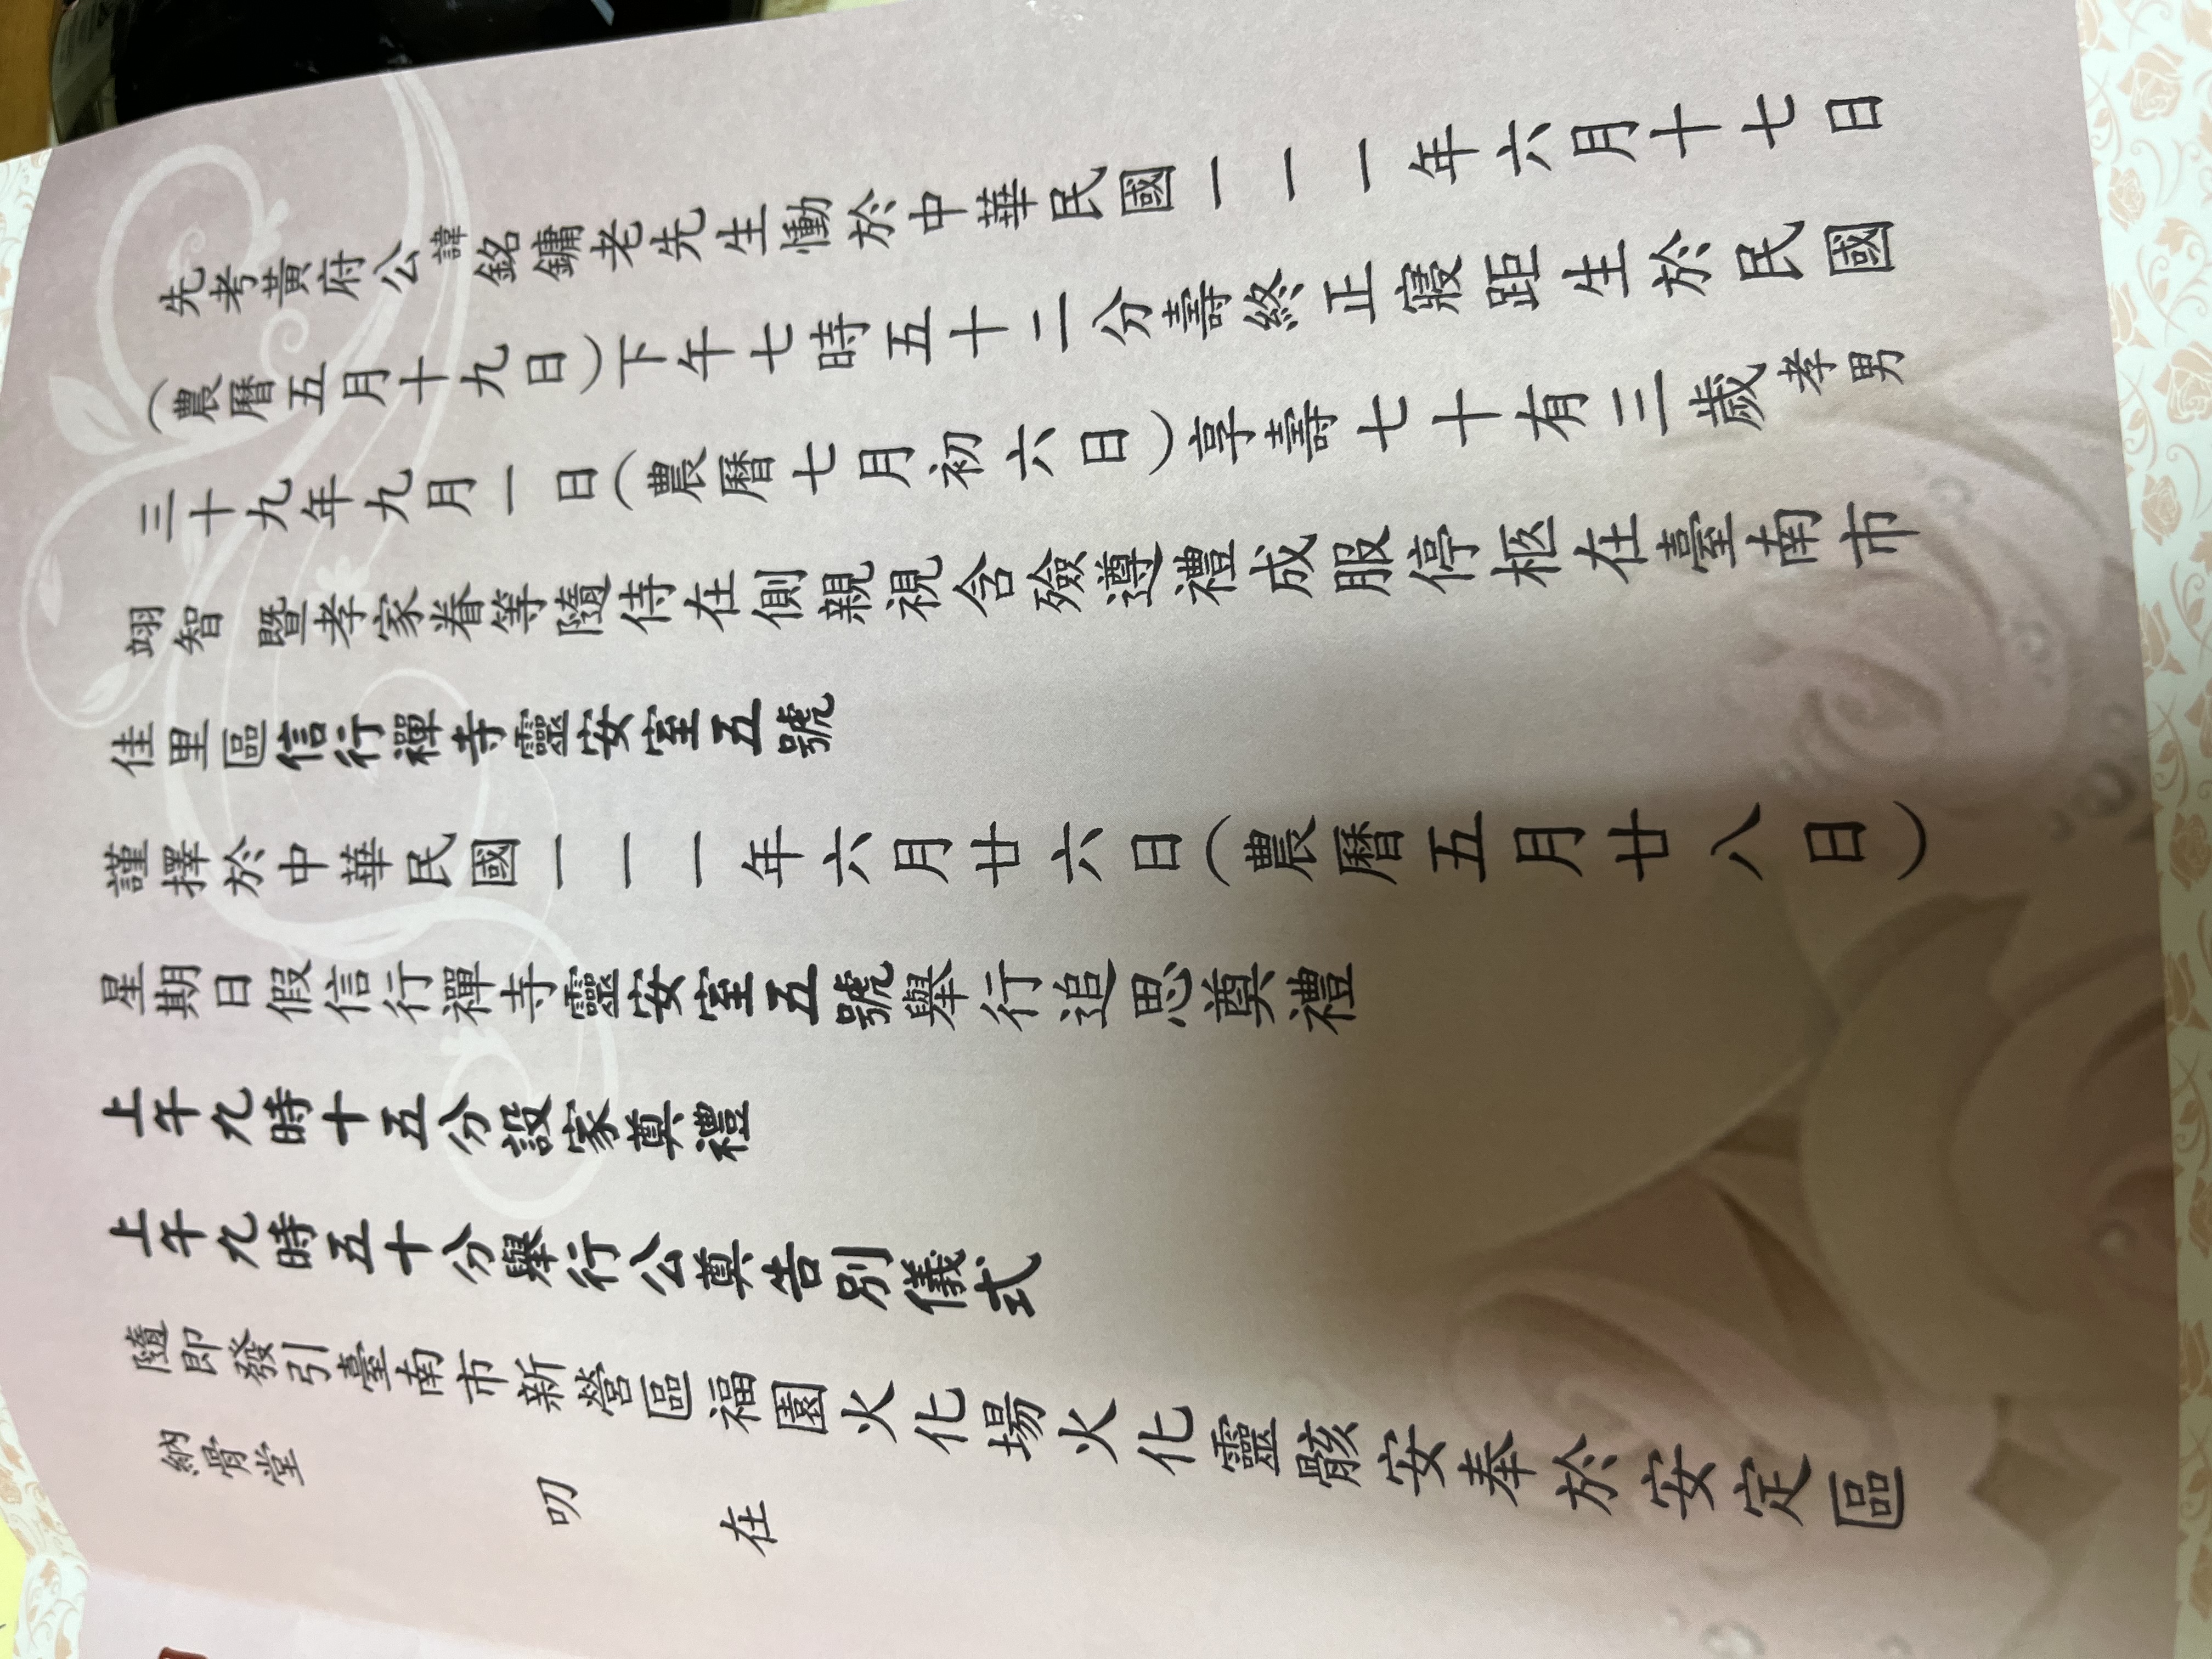 先考黃府公諱銘鏞老先生慟於中華民國一一一年六月十七日
（農曆五月十九日）下午七時五十二分壽終正寢距生於民國
三十九年九月一日（農曆七月初六日）享壽七十有三歲孝男
翊智 暨孝家眷等隨侍在側親視含殮遵禮成服停柩在臺南市
佳里區信行禪寺靈安室五號
謹擇於中華民國一一一年六月廿六日（農曆五月廿八日）
星期日假信行禪寺靈安室五號舉行追思奠禮
上午九時十五分設家奠禮
上午九時五十分舉行公奠告別儀式
隨即發引臺南市新營區福園火化場火化靈骸安奉於安定區
納骨堂
叨 在